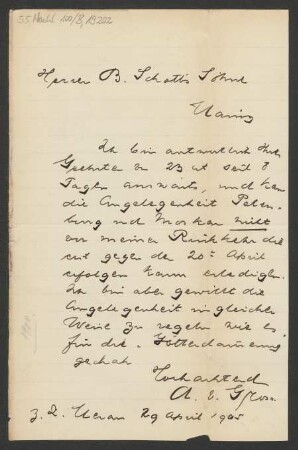 55 Nachl 100/B, 19222
Herren B. Schotts Söhne
Mainz
Ich bin antwortlich Ihres
Geehrten v 23 at seit 8
Tagen auswärts, und kann
die Angelegenheit Peters-
burg und Moskau nicht
vor meiner Rückkehr die
erst gegen den 20ten April
erfolgen kann erledigen.
Ich bin aber gewillt die
Angelegenheit in gleicher
Weise zu regeln wie es
für die Götterdämmerung
geschah
Hochachtend
A. v. Gross
z. Z. Meran 29 April 1905